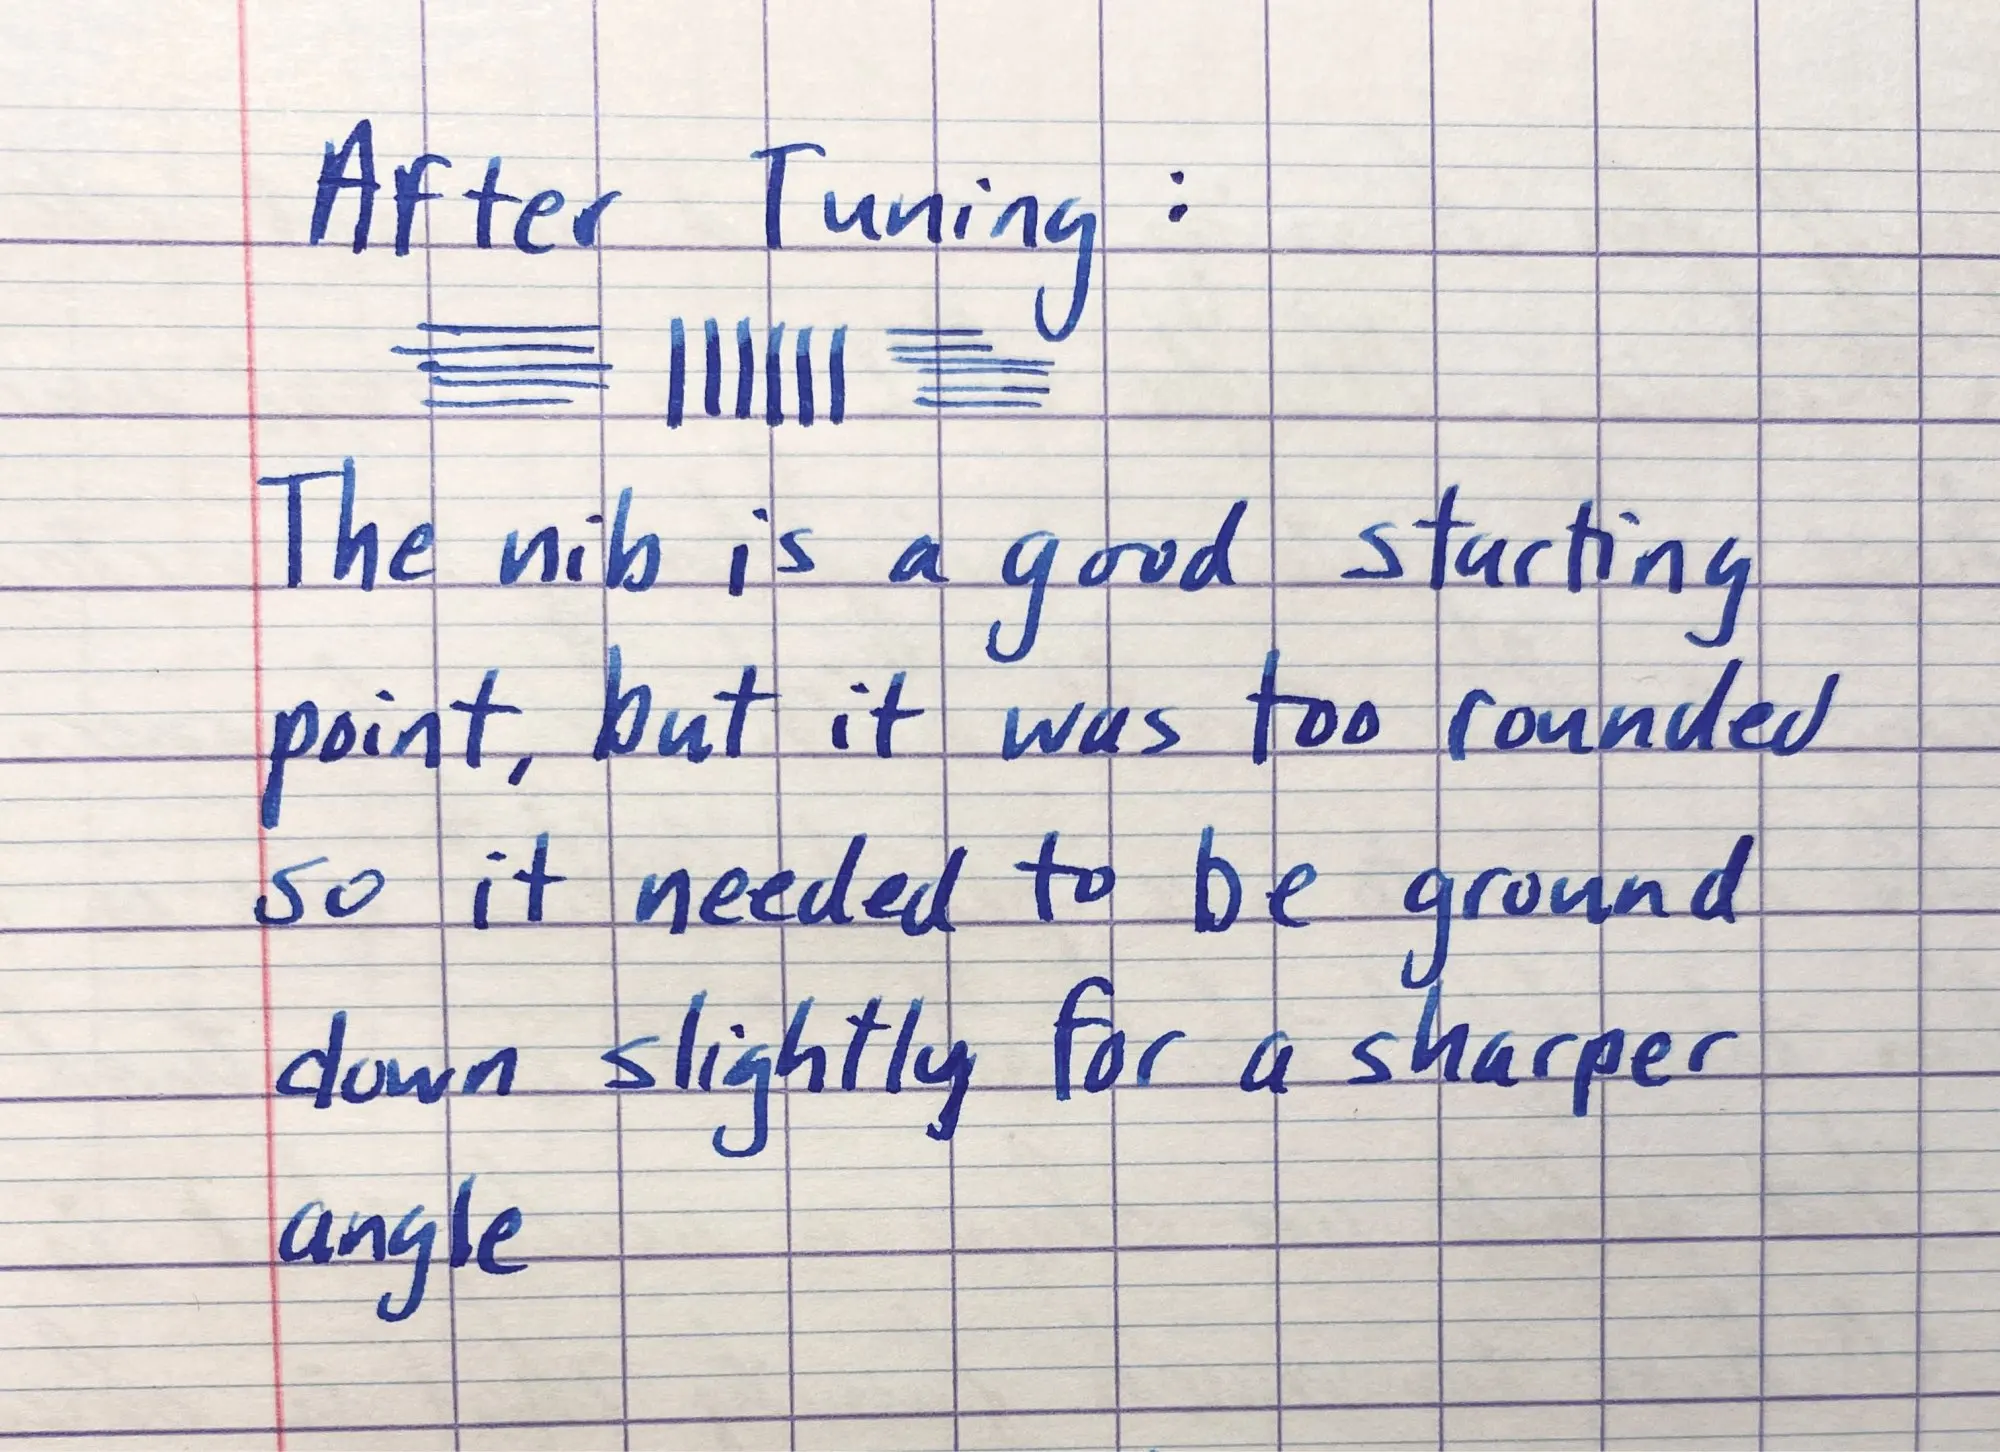 After Tuning:
The nib is a good starting
point, but it was too rounded
so it needed to be ground
down slightly for a sharper
angle